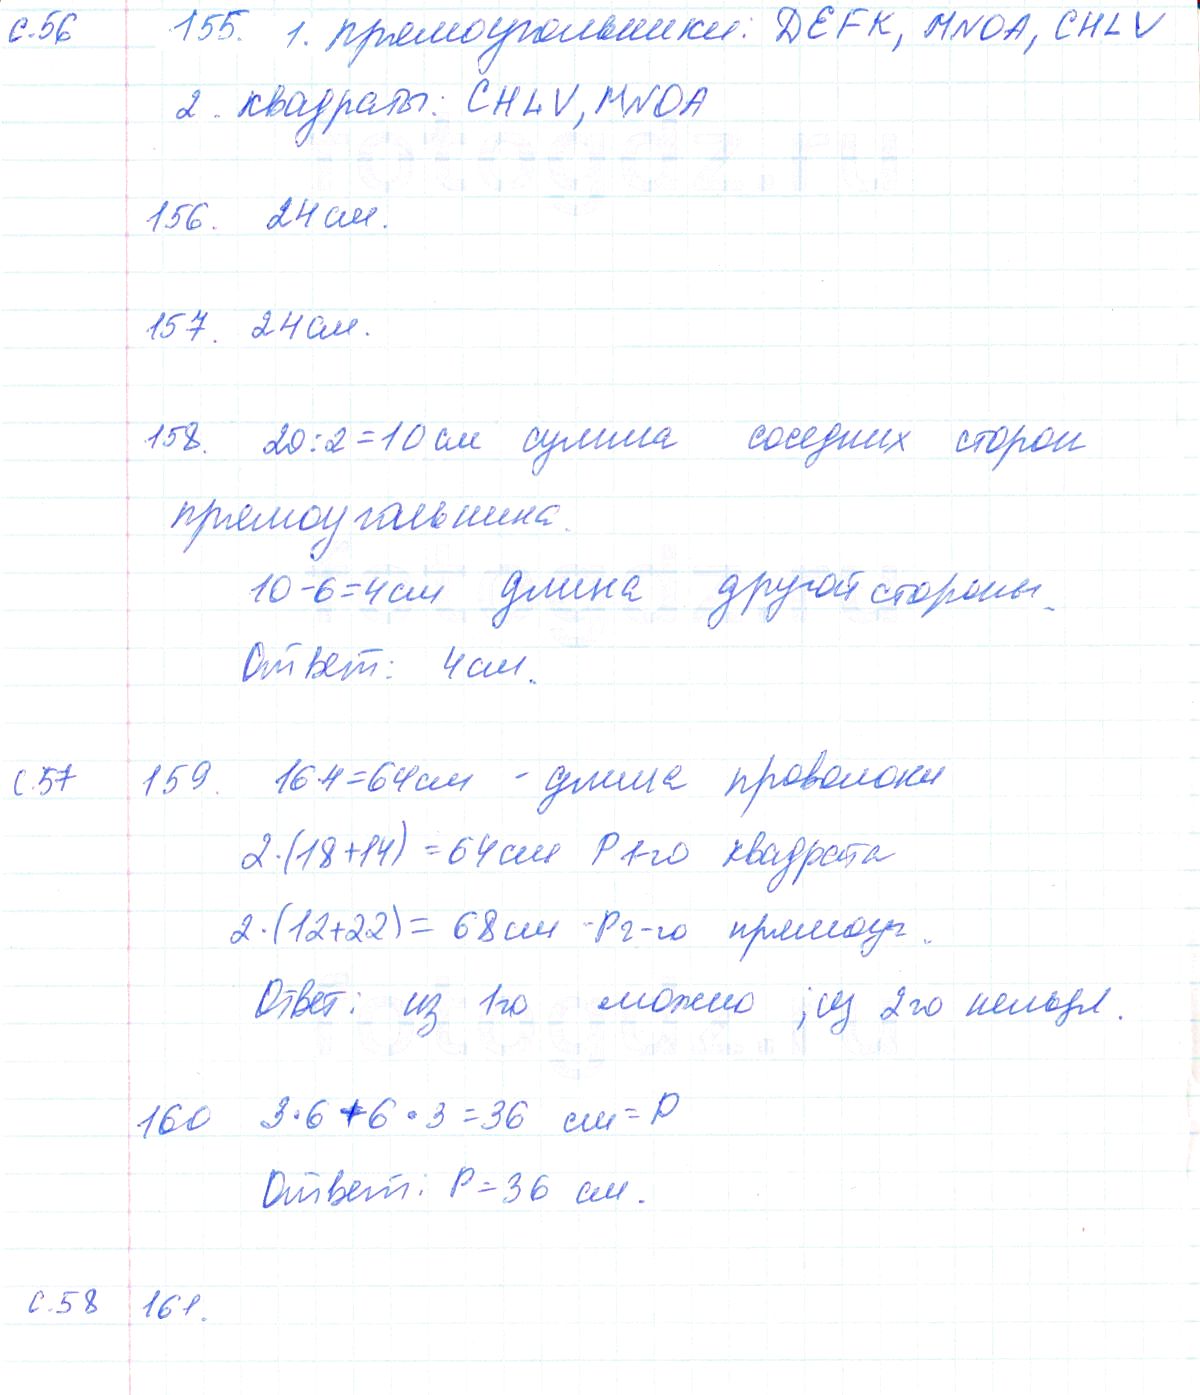 с.56 155. 1. прямоугольники: DEFK, MNOA, CHLV
2. квадраты: CHLV, MNOA
156. 24см.
157. 24см.
158. 20:2=10см сумма соседних сторон
прямоугольника.
10-6=4см длина другой стороны.
Ответ: 4см.
с.57 159. 16·4=64см - длина проволоки
2·(18+14)=64см P 1-го квадрата
2·(12+22)=68см -P 2-го прямоуг.
Ответ: из 1го можно ; из 2го нельзя.
160 3·6+6·3=36 см=P
Ответ: P=36 см.
с.58 161.